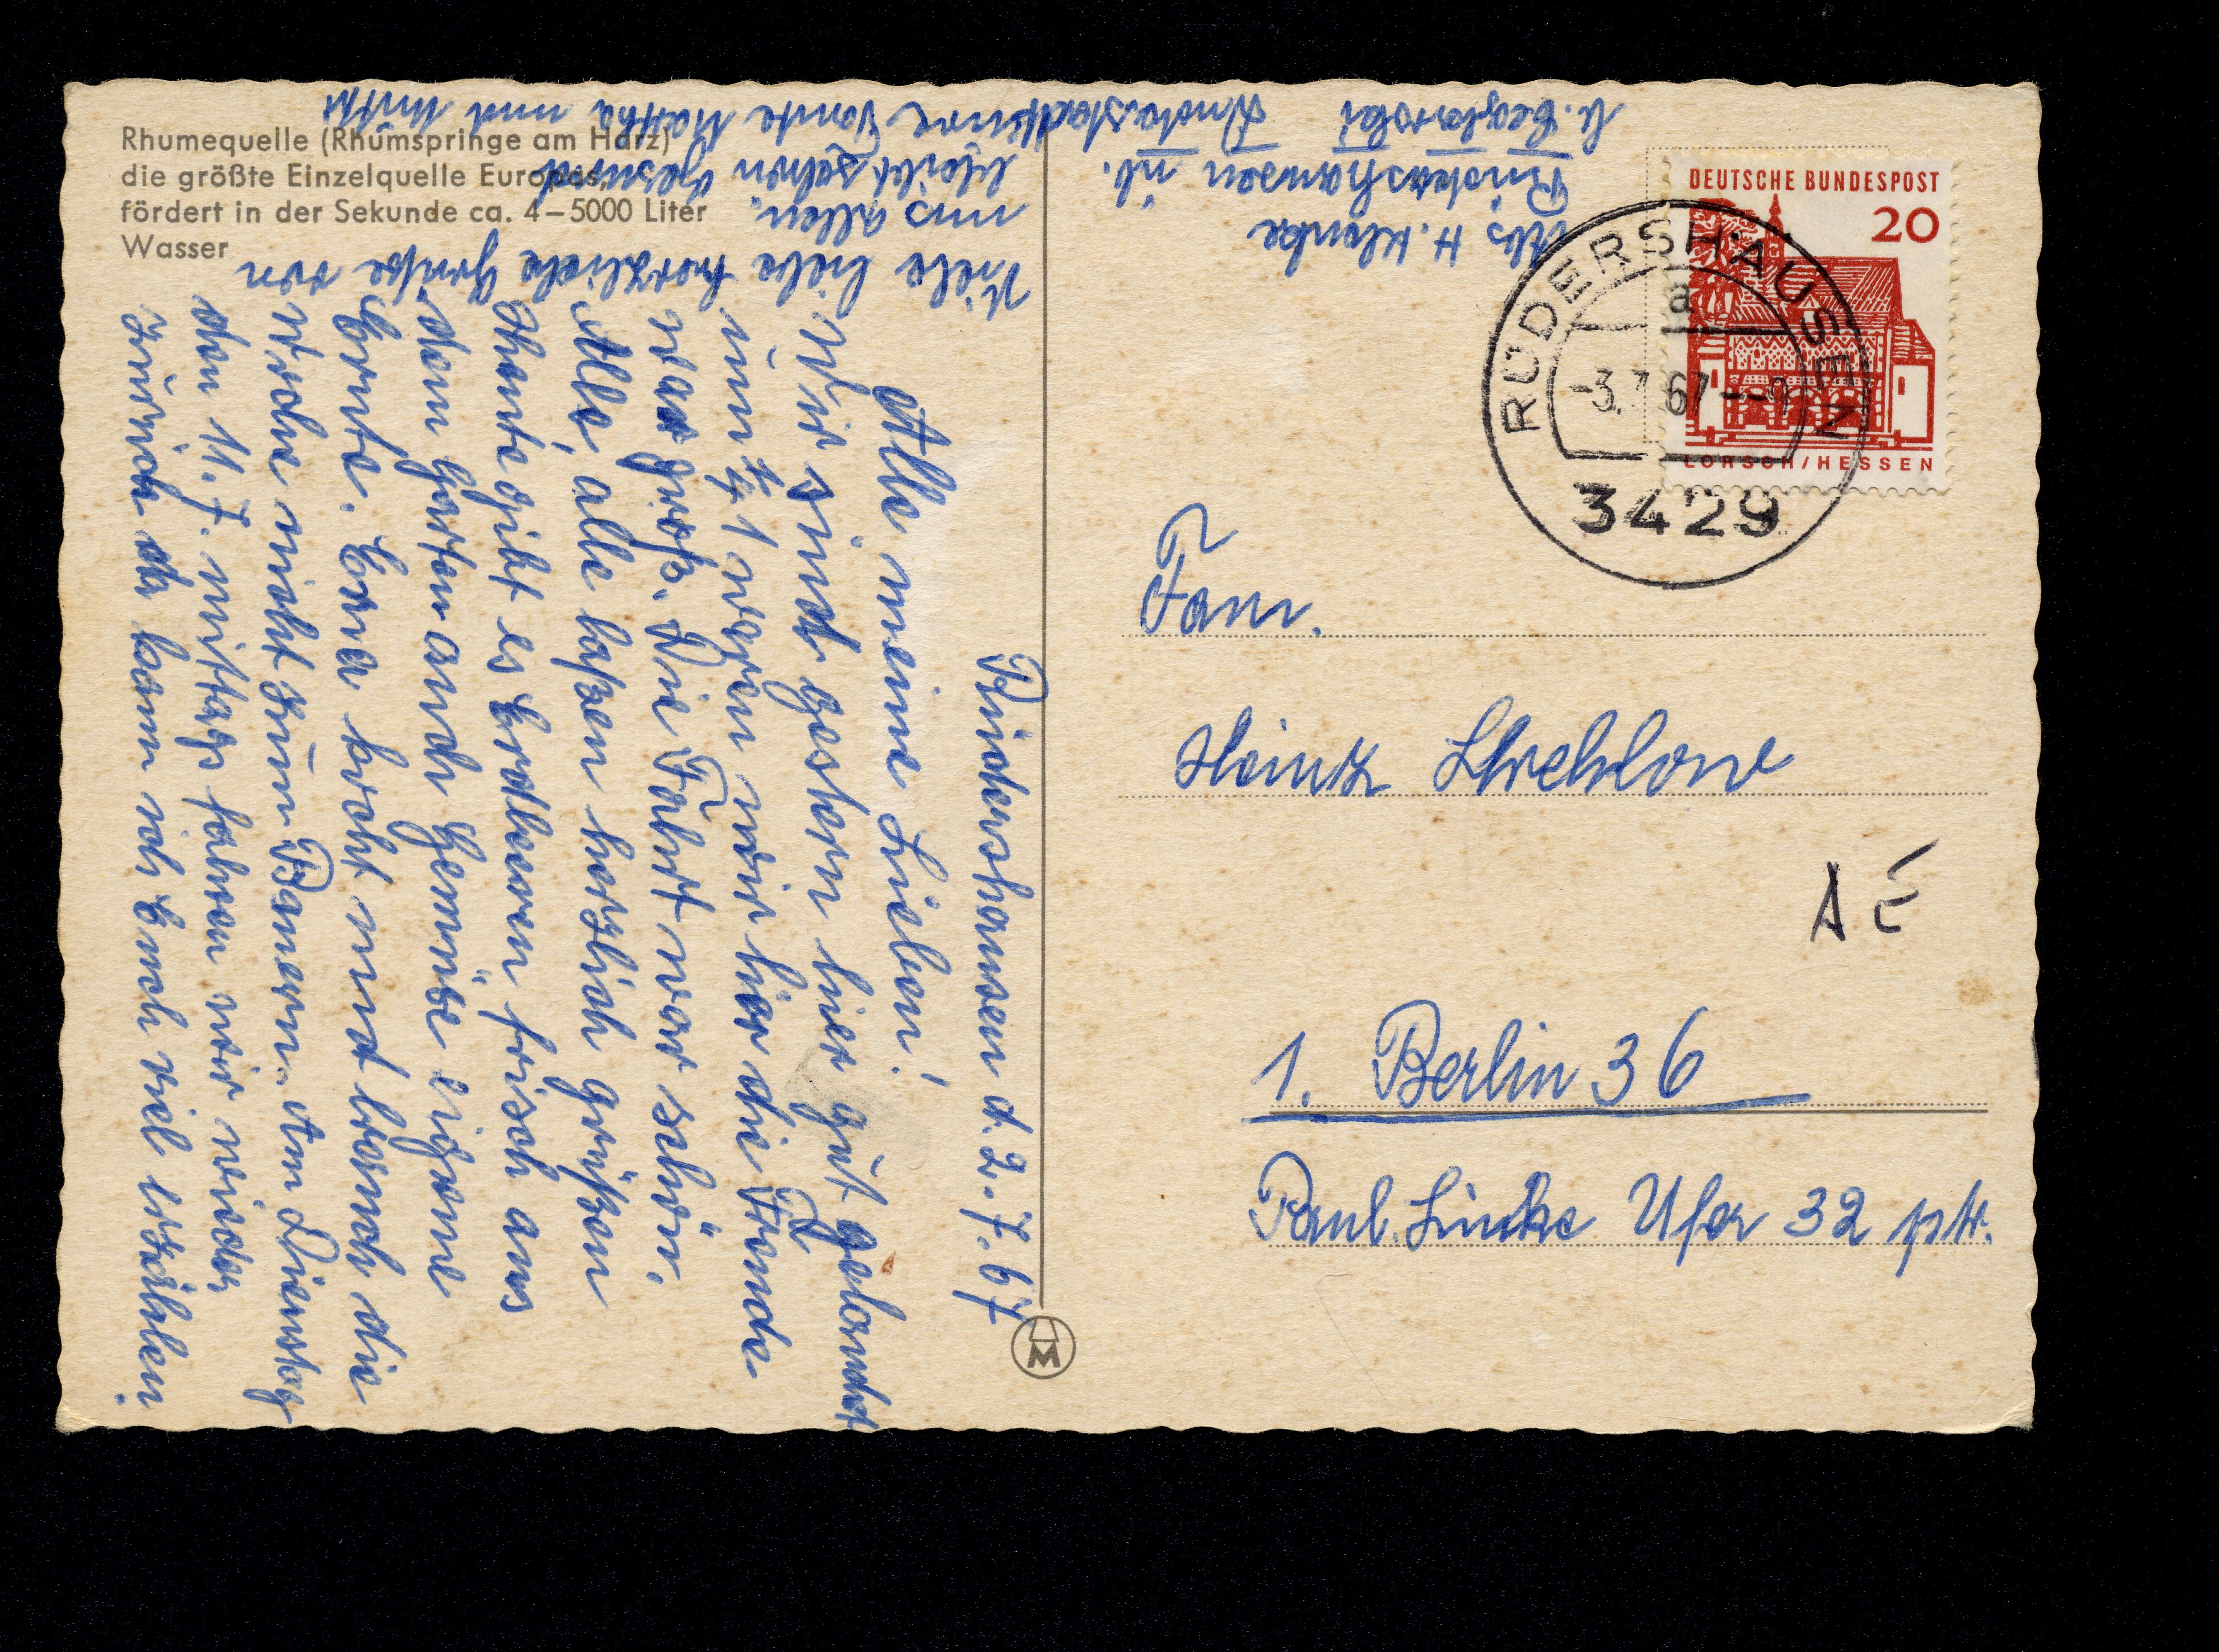 Rhumequelle (Rhumspringe am Harz)
die größte Einzelquelle Europas,
fördert in der Sekunde ca. 4–5000 Liter
Wasser
Rüdershausen d. 2.7.67
Alle meine Lieben!
Wir sind gestern hier gut gelandet
um ¾ 1 waren wir hier die Freude
war groß. Die Fahrt war schön.
Alle, alle laßen herzlich grüßen
Heute gibt es Erdbeeren frisch aus
dem Garten auch Gemüse eigene
Ernte. Erna kocht und brauch die
Woche nicht zum Bauern. Am Dienstag
den 11.7. mittags fahren wir wieder
zurück da kann ich Euch viel erzählen
Viele liebe herzliche Grüße von
uns allen.
Bleibt schön gesund
Eure Tante Martha und Mutti
Abs H. Klonke
Rüdershausen üb.
DEUTSCHE BUNDESPOST
20
LORSCH/HESSEN
RÜDERSHAUSEN
a
-3.7.67
3429
Fam.
Heinz Strehlow
1. Berlin 36
Paul Linke Ufer 32 ptr.
M